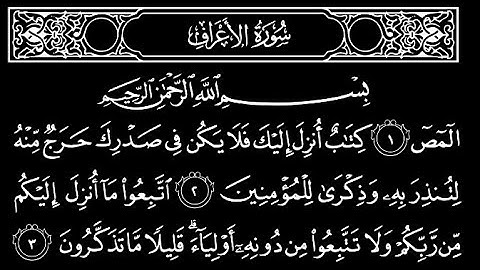 سُورَةُ الأَعْرَافِ
بِسْمِ ٱللَّهِ ٱلرَّحْمَٰنِ ٱلرَّحِيمِ
الٓمٓصٓ ۝١ كِتَٰبٌ أُنزِلَ إِلَيْكَ فَلَا يَكُن فِى صَدْرِكَ حَرَجٌ مِّنْهُ
لِتُنذِرَ بِهِۦ وَذِكْرَىٰ لِلْمُؤْمِنِينَ ۝٢ ٱتَّبِعُوا۟ مَآ أُنزِلَ إِلَيْكُم
مِّن رَّبِّكُمْ وَلَا تَتَّبِعُوا۟ مِن دُونِهِۦٓ أَوْلِيَآءَ ۗ قَلِيلًا مَّا تَذَكَّرُونَ ۝٣